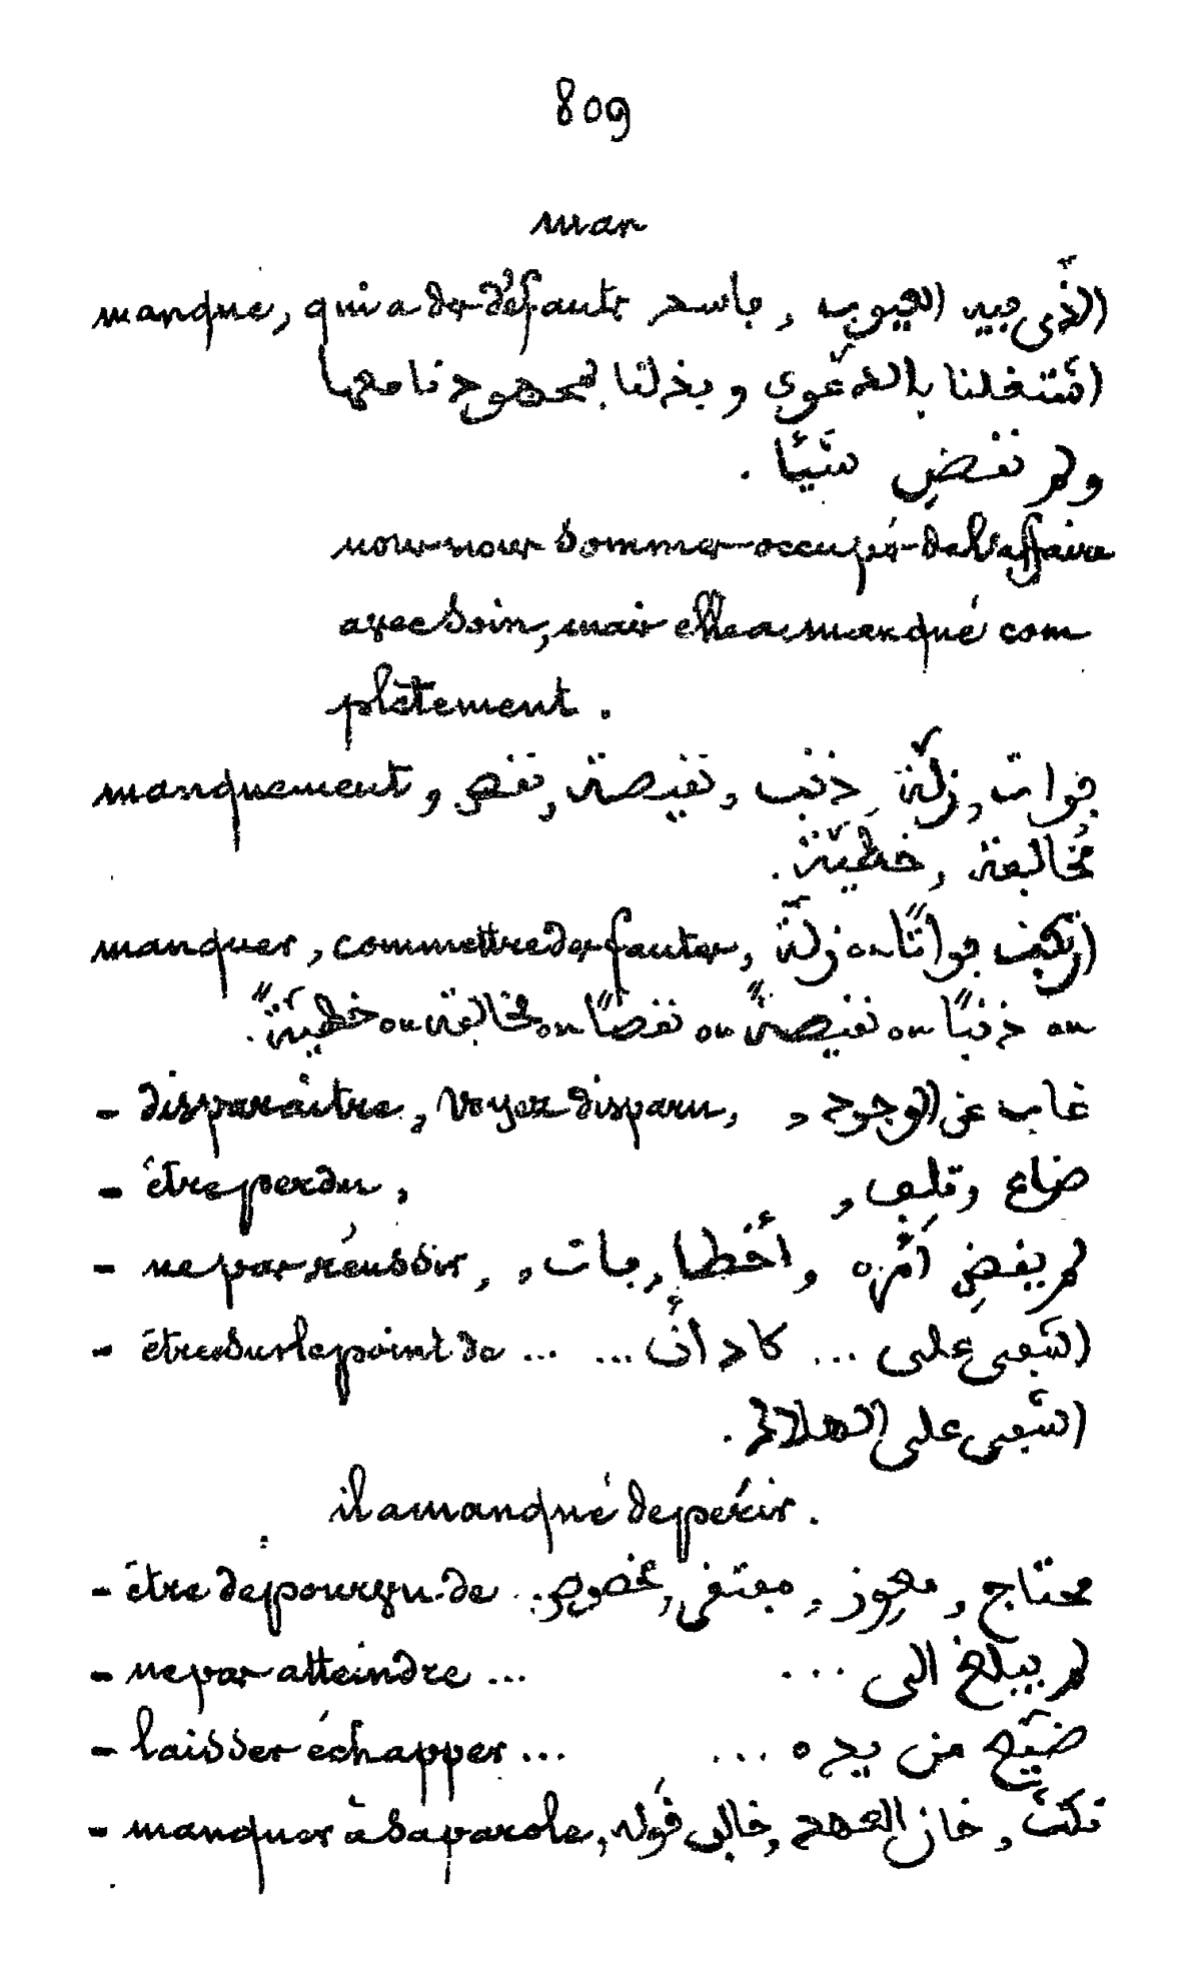 809
man
manqué, qui a des défauts فاسد , الذّي فيه العيوب
اشتغلنا بالدّعوي وبذلنا مجهودنا معها
ولم نقضِ شَيْئًا .
nous nous sommes occupés de l'affaire
avec soin, mais elle a manqué com
plètement .
manquement , فوات , زلّة , ذنب , نقيصة , نقص
مُخالفة , خطيّة .
manquer , commettre des fautes , ارتكب فواتًا ou زلّة
ou ذنبًا ou نقيصةً ou نقصًا ou مخالفة ou خطيّةً .
- disparaître , voyez disparu , غاب عن الوجود ,
- être perdu , ضاع , تلِف ,
- ne pas réussir , لم يقضِ أمْره , أخطأ , فات ,
- être sur le point de ... اشفى على ... كاد أنْ ...
اشفى على الهلاك .
il a manqué de périr .
- être dépourvu de .. محتاج , معوِز , مفتقر , مخصوص
- ne pas atteindre ... لم يبلغ الى ...
- laisser échapper ... ضيّع من يده ...
- manquer à sa parole , نكث , خان العهد , خالف قَوله